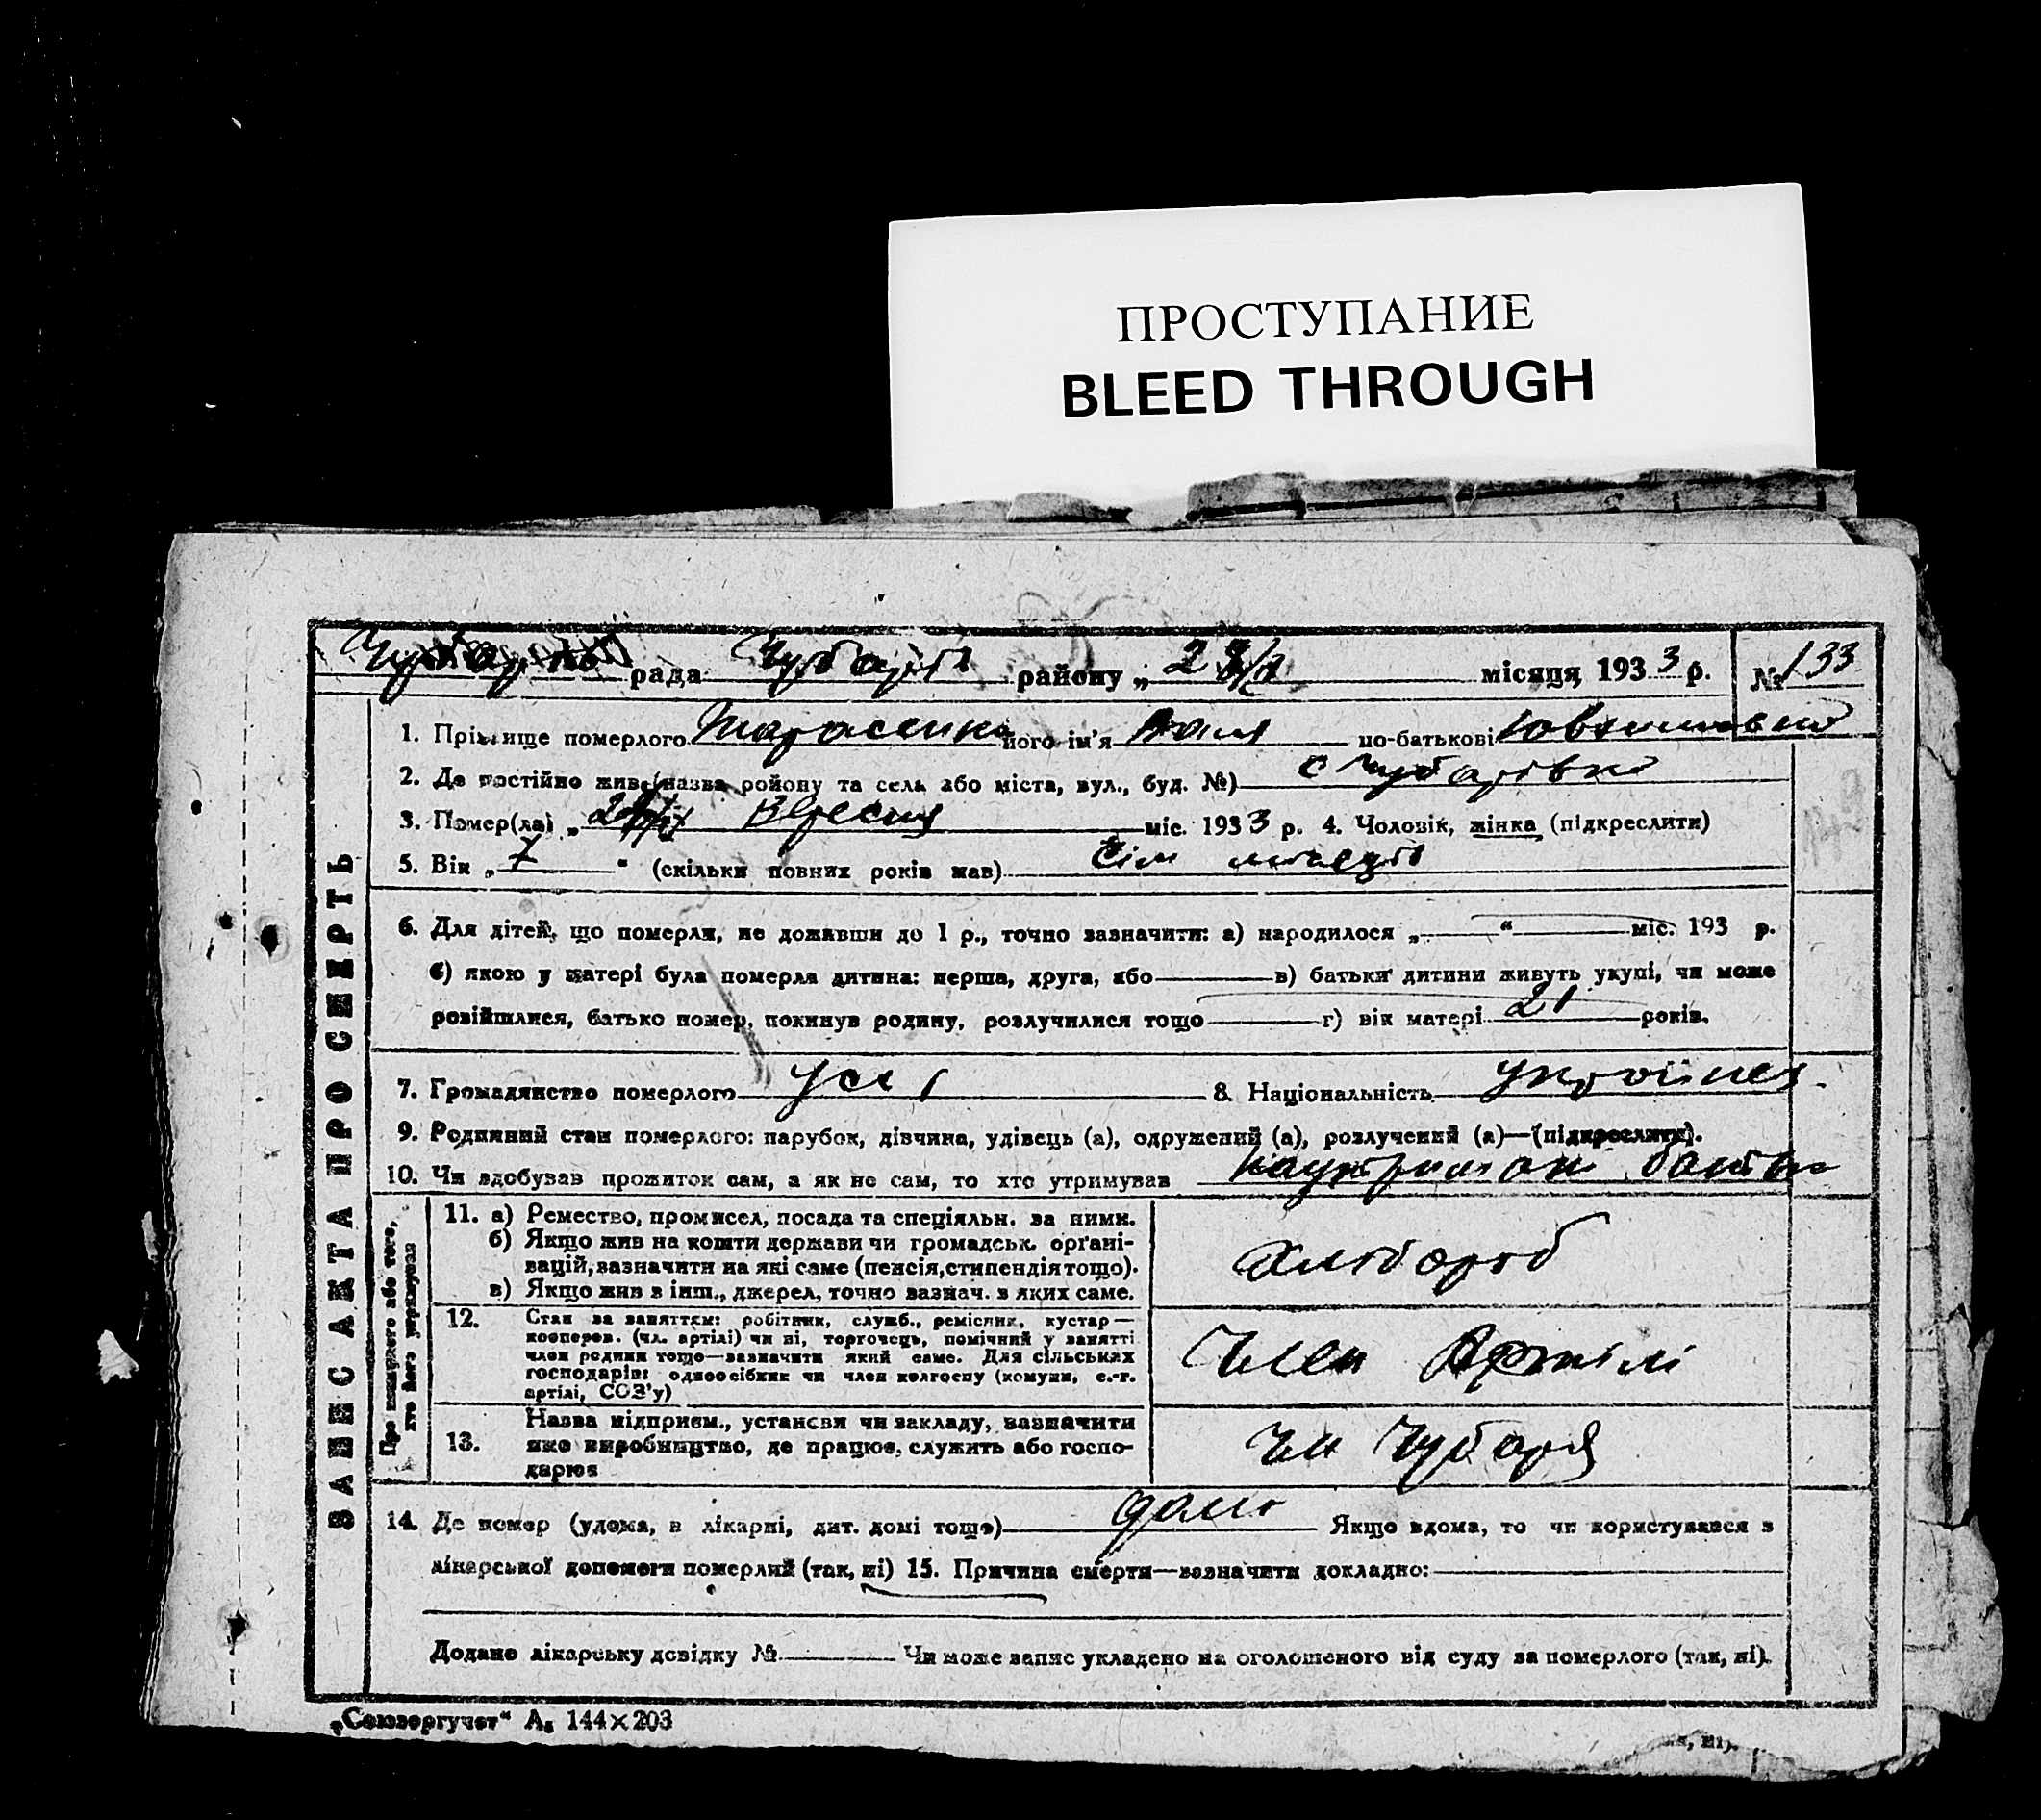 ПРОСТУПАНИЕ
BLEED THROUGH
рада району „ місяця 1933 р. № 133
1. Прізвище померлого Тарасенко його ім'я Ваня по-батькові
2. Де постійно жив (назва району та села або міста, вул., буд. №) с Чубарівка
3. Помер(ла) „ Вересня міс. 1933 р. 4. Чоловік, жінка (підкреслити)
5. Вік „ 7 “ (скільки повних років мав) Сім місяців
6. Для дітей, що померли, не доживши до 1 р., точно зазначити: а) народилося „ “ міс. 193 р.
б) якою у матері була померла дитина: перша, друга, або в) батьки дитини живуть укупі, чи може
розійшлися, батько помер, покинув родину, розлучилися тощо г) вік матері 21 років.
7. Громадянство померлого 8. Національність
9. Родинний стан померлого: парубок, дівчина, удівець (а), одружений (а), розлучений (а)—(підкреслити).
10. Чи здобував прожиток сам, а як не сам, то хто утримував
ЗАПИС АКТА ПРО СМЕРТЬ
Про померлого або того, хто його утримував
11. а) Ремество, промисел, посада та спеціяльн. за ними.
б) Якщо жив на кошти держави чи громадськ. органі-
зацій, зазначити на які саме (пенсія, стипендія тощо).
в) Якщо жив з інш., джерел, точно зазнач. з яких саме.
Хлібороб
12. Стан за заняттям: робітник, служб., ремісник, кустар—
коопeров. (чл. артілі) чи ні, торговець, помічний у занятті
член родини тощо—зазначити який саме. Для сільських
господарів: одноосібник чи член колгоспу (комуни, с.-г.
артілі, СОЗ'у)
Член Артілі
13. Назва підприєм., установи чи закладу, зазначити
яке виробництво, де працює, служить або госпо-
дарює
14. Де помер (удома, в лікарні, дит. домі тощо) дома Якщо вдома, то чи користувався з
лікарської допомоги померлий (так, ні) 15. Причина смерти—зазначити докладно:
Додано лікарську довідку № Чи може запис укладено на оголошеного від суду за померлого (так, ні).
„Союзоргучет“ А₅ 144×203